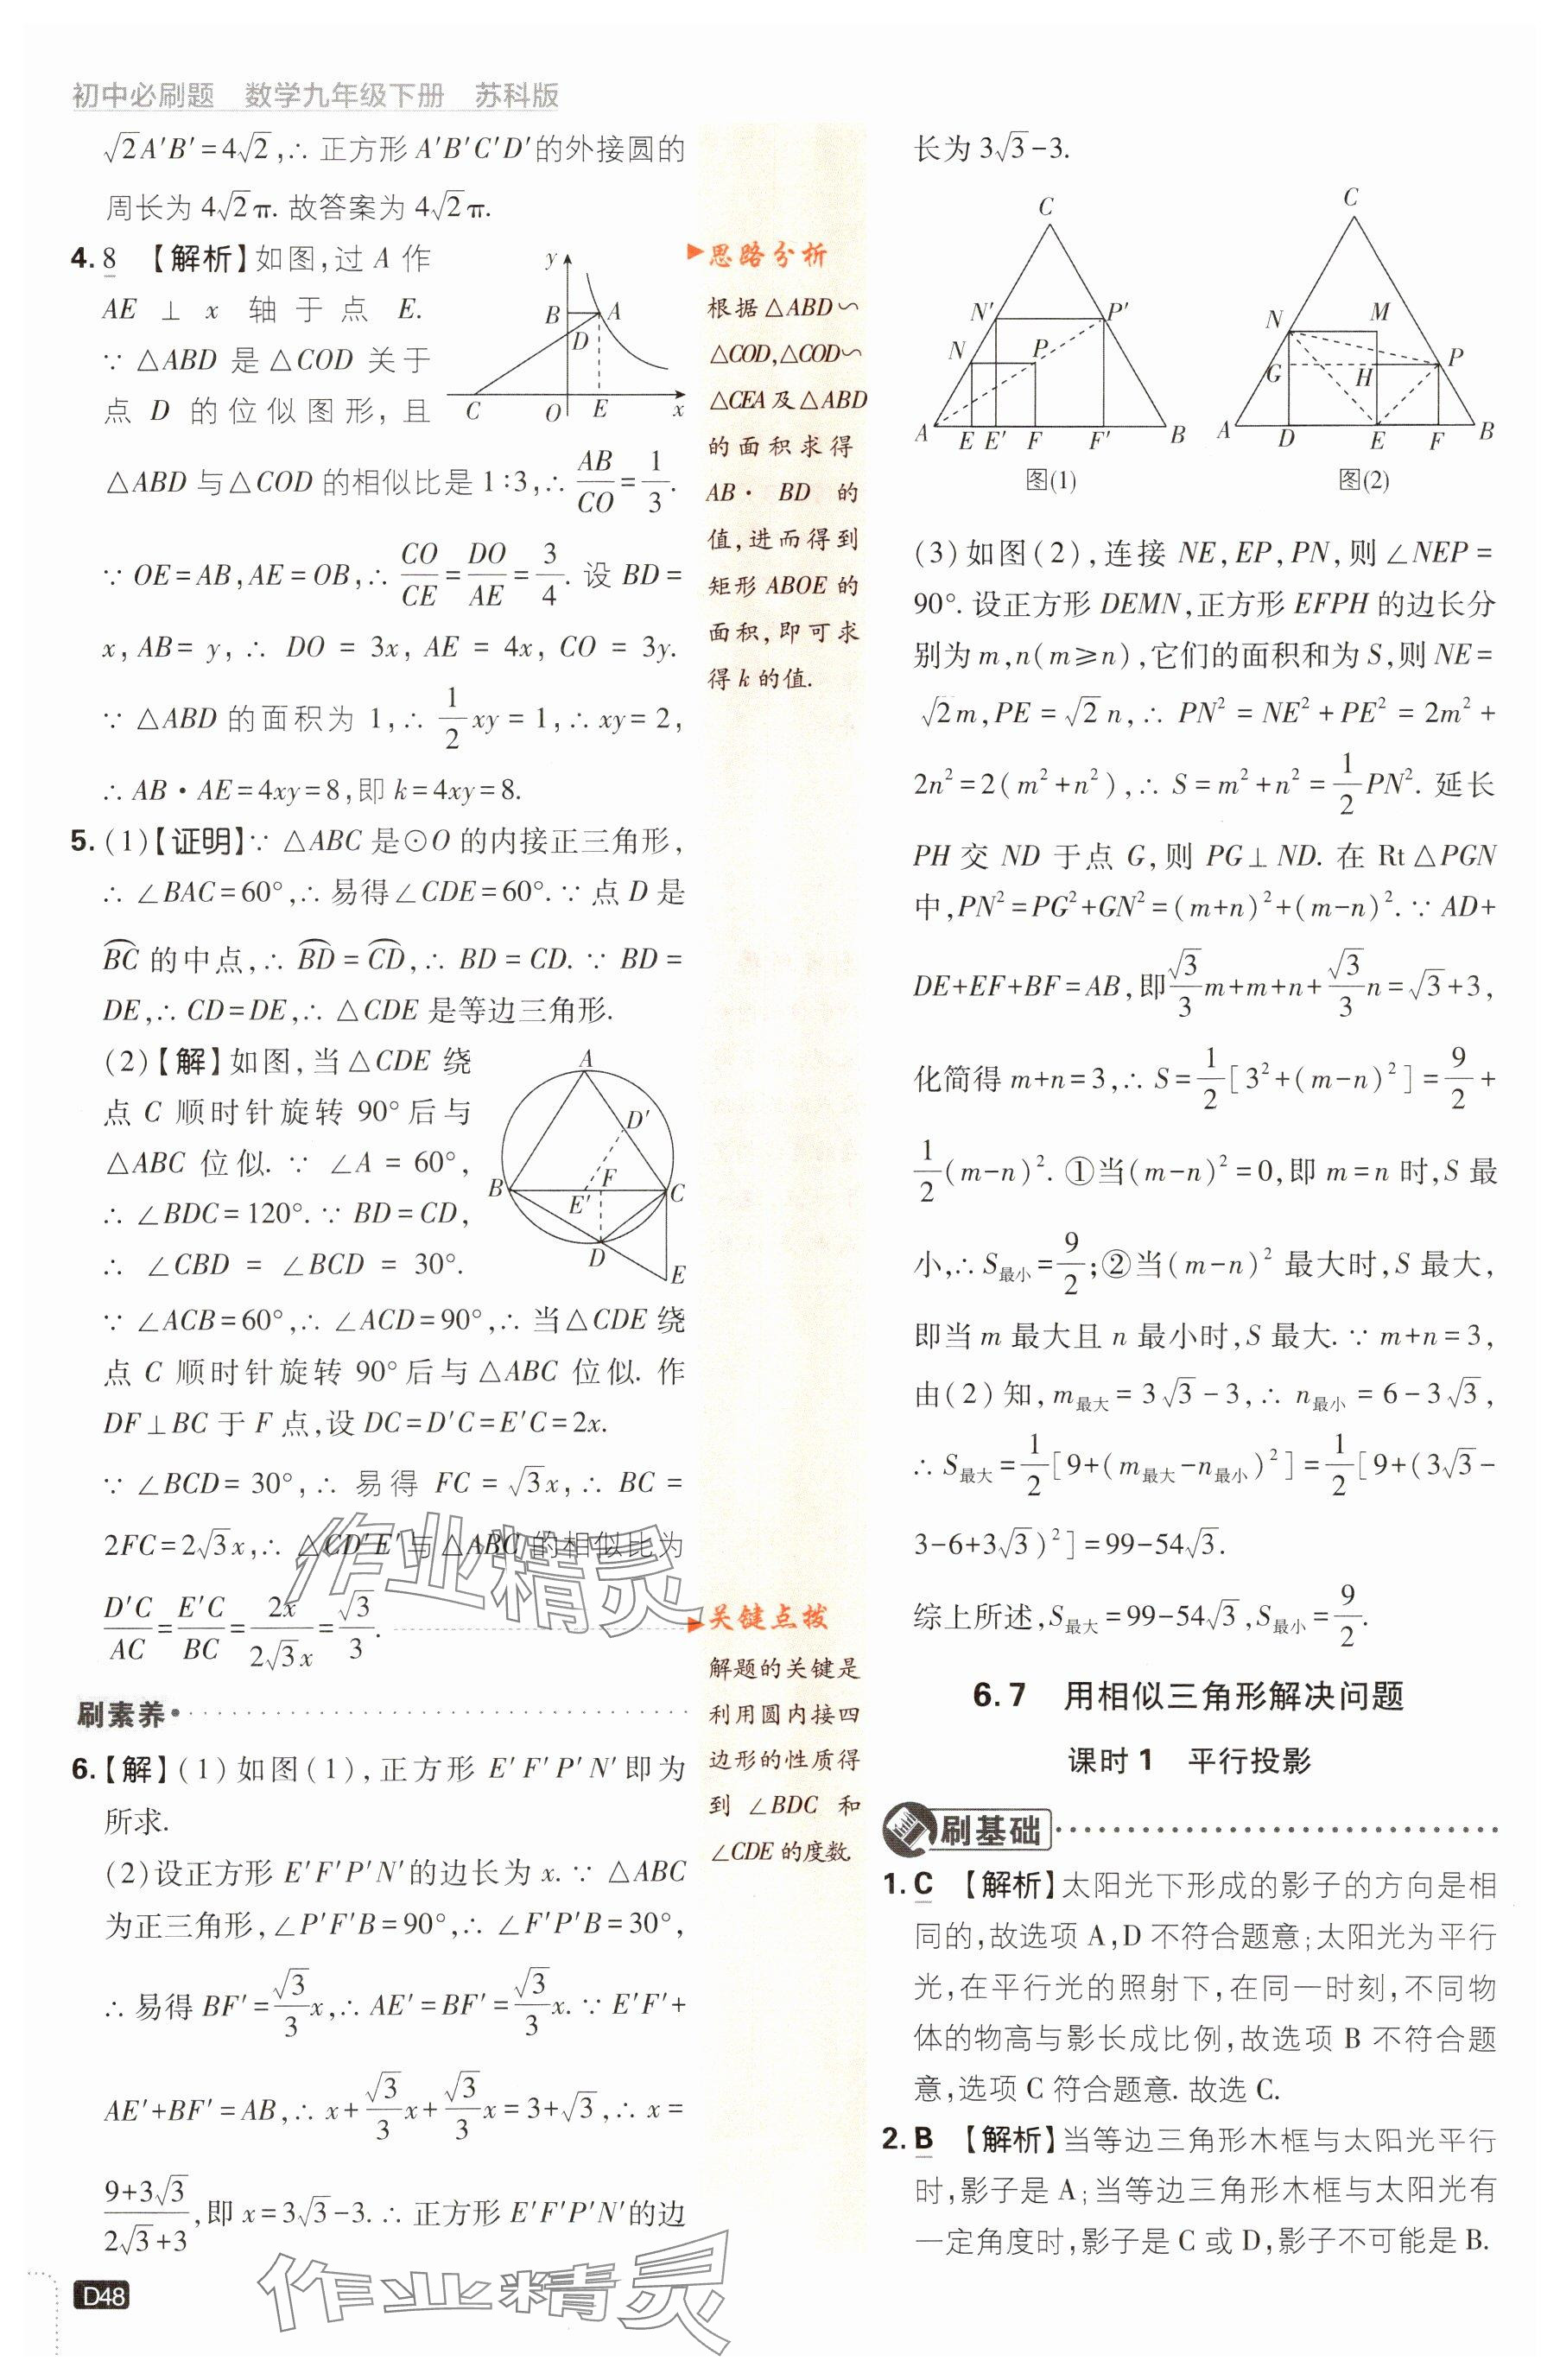 初中必刷题 数学九年级下册 苏科版
√2A′B′=4√2,∴ 正方形 A′B′C′D′的外接圆的
周长为 4√2π. 故答案为 4√2π.
4. 8 【解析】如图,过 A 作
AE ⊥ x 轴 于 点 E.
∵ △ABD 是 △COD 关于
点 D 的位似图形,且
△ABD 与△COD 的相似比是 1∶3,∴ AB/CO=1/3.
∵ OE=AB,AE=OB,∴ CO/CE=DO/AE=3/4. 设 BD=
x, AB= y, ∴ DO = 3x, AE = 4x, CO = 3y.
∵ △ABD 的面积为 1,∴ 1/2 xy=1,∴ xy=2,
∴ AB·AE=4xy=8,即 k=4xy=8.
y
B
A
D
C
O
E
x
5. (1)【证明】∵ △ABC 是⊙O 的内接正三角形,
∴ ∠BAC=60°,∴ 易得∠CDE=60°. ∵ 点 D 是
BC⌒ 的中点,∴ BD⌒=CD⌒,∴ BD=CD. ∵ BD=
DE,∴ CD=DE,∴ △CDE 是等边三角形.
(2)【解】如图,当△CDE 绕
点 C 顺时针旋转 90°后与
△ABC 位似. ∵ ∠A = 60°,
∴ ∠BDC=120°. ∵ BD=CD,
∴ ∠CBD = ∠BCD = 30°.
∵ ∠ACB=60°,∴ ∠ACD=90°,∴ 当△CDE 绕
点 C 顺时针旋转 90°后与△ABC 位似. 作
DF⊥BC 于 F 点,设 DC=D′C=E′C=2x.
∵ ∠BCD=30°,∴ 易得 FC=√3x,∴ BC=
2FC=2√3x,∴ △CD′E′与△ABC 的相似比为
D′C/AC=E′C/BC=2x/2√3x=√3/3.
A
D′
B
F
E′
C
D
E
刷素养
6.【解】(1)如图(1),正方形 E′F′P′N′即为
所求.
(2)设正方形 E′F′P′N′的边长为 x. ∵ △ABC
为正三角形,∠P′F′B=90°,∴ ∠F′P′B=30°,
∴ 易得 BF′=√3/3 x,∴ AE′=BF′=√3/3 x. ∵ E′F′+
AE′+BF′=AB,∴ x+√3/3 x+√3/3 x=3+√3,∴ x=
(9+3√3)/(2√3+3),即 x=3√3-3. ∴ 正方形 E′F′P′N′的边
D48
思路分析
根据△ABD∽
△COD,△COD∽
△CEA及△ABD
的面积求得
AB· BD 的
值,进而得到
矩形 ABOE 的
面积,即可求
得 k 的值.
关键点拨
解题的关键是
利用圆内接四
边形的性质得
到 ∠BDC 和
∠CDE 的度数.
长为 3√3-3.
C
N′
P′
N
P
A
E E′
F
F′
B
图(1)
C
N
M
G
H
P
A
D
E
F
B
图(2)
(3)如图(2),连接 NE,EP,PN,则∠NEP=
90°. 设正方形 DEMN,正方形 EFPH 的边长分
别为 m,n(m≥n),它们的面积和为 S,则 NE=
√2m,PE=√2n,∴ PN²=NE²+PE²=2m²+
2n²=2(m²+n²),∴ S=m²+n²=1/2 PN². 延长
PH 交 ND 于点 G,则 PG⊥ND. 在 Rt△PGN
中,PN²=PG²+GN²=(m+n)²+(m-n)². ∵ AD+
DE+EF+BF=AB,即√3/3 m+m+n+√3/3 n=√3+3,
化简得 m+n=3,∴ S=1/2[3²+(m-n)²]=9/2+
1/2(m-n)². ①当(m-n)²=0,即 m=n 时,S 最
小,∴ S最小=9/2;②当(m-n)² 最大时,S 最大,
即当 m 最大且 n 最小时,S 最大. ∵ m+n=3,
由(2)知,m最大=3√3-3,∴ n最小=6-3√3,
∴ S最大=1/2[9+(m最大-n最小)²]=1/2[9+(3√3-
3-6+3√3)²]=99-54√3.
综上所述,S最大=99-54√3,S最小=9/2.
6.7 用相似三角形解决问题
课时1 平行投影
刷基础
1. C 【解析】太阳光下形成的影子的方向是相
同的,故选项 A,D 不符合题意;太阳光为平行
光,在平行光的照射下,在同一时刻,不同物
体的物高与影长成比例,故选项 B 不符合题
意,选项 C 符合题意. 故选 C.
2. B 【解析】当等边三角形木框与太阳光平行
时,影子是 A;当等边三角形木框与太阳光有
一定角度时,影子是 C 或 D,影子不可能是 B.
作业精灵
作业精灵